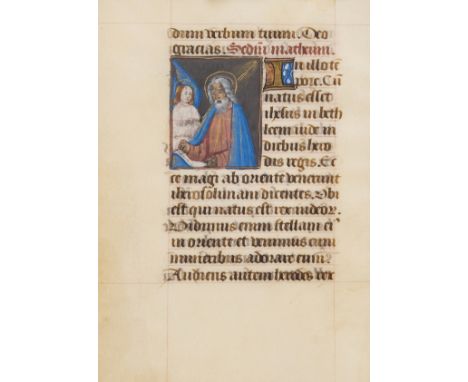 dum verbum tuum. Deo
gracias. Sedm̄ matheum.
In illo te
pore. Cū
natus esset
ihesus in beth
leem iude in
diebus hero
dis regis. Ec
ce magi ab oriente venerunt
iherosolimam dicentes. Vbi
est qui natus est rex iudeor̄.
Vidimus enim stellam ei'
in oriente et venimus cum
muneribus adorare eum.
Audiens autem herodes rex